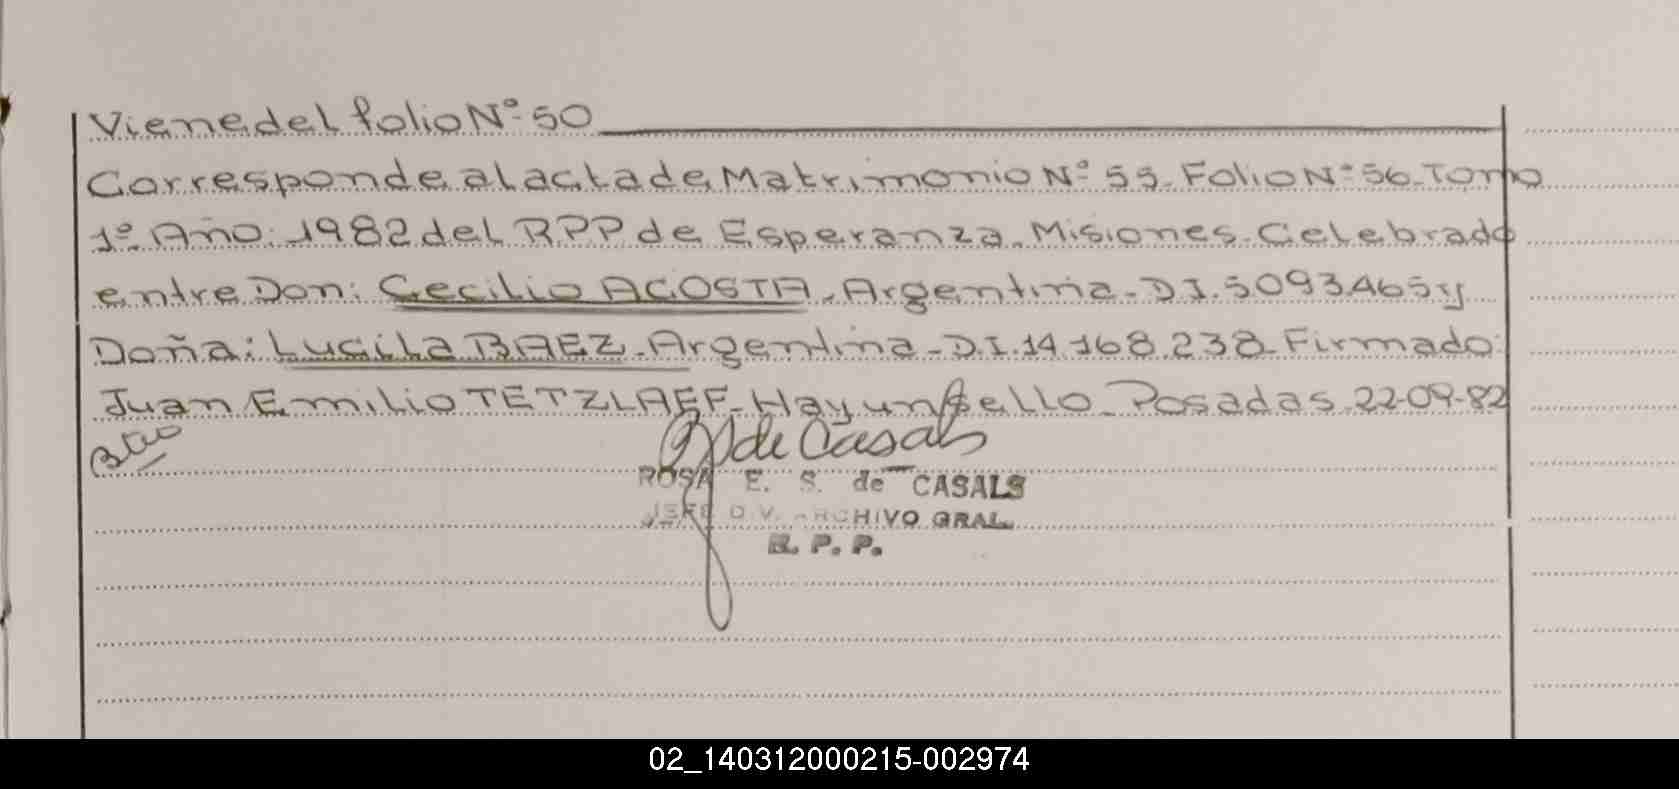 Viene del folio Nº 50
Corresponde al acta de Matrimonio Nº 55. Folio Nº 56. Tomo
1º. Año: 1982 del RPP de Esperanza. Misiones. Celebrado
entre Don: Cecilio ACOSTA. Argentina. D I. 5093465 y
Doña: Lucila BAEZ. Argentina. D.I. 14.168.238. Firmado:
Juan Emilio TETZLAFF. Hay un sello. Posadas. 22-09-82
de Casals
ROSA E. S. de CASALS
JEFE DIV. ARCHIVO GRAL.
R. P. P.
02_140312000215-002974